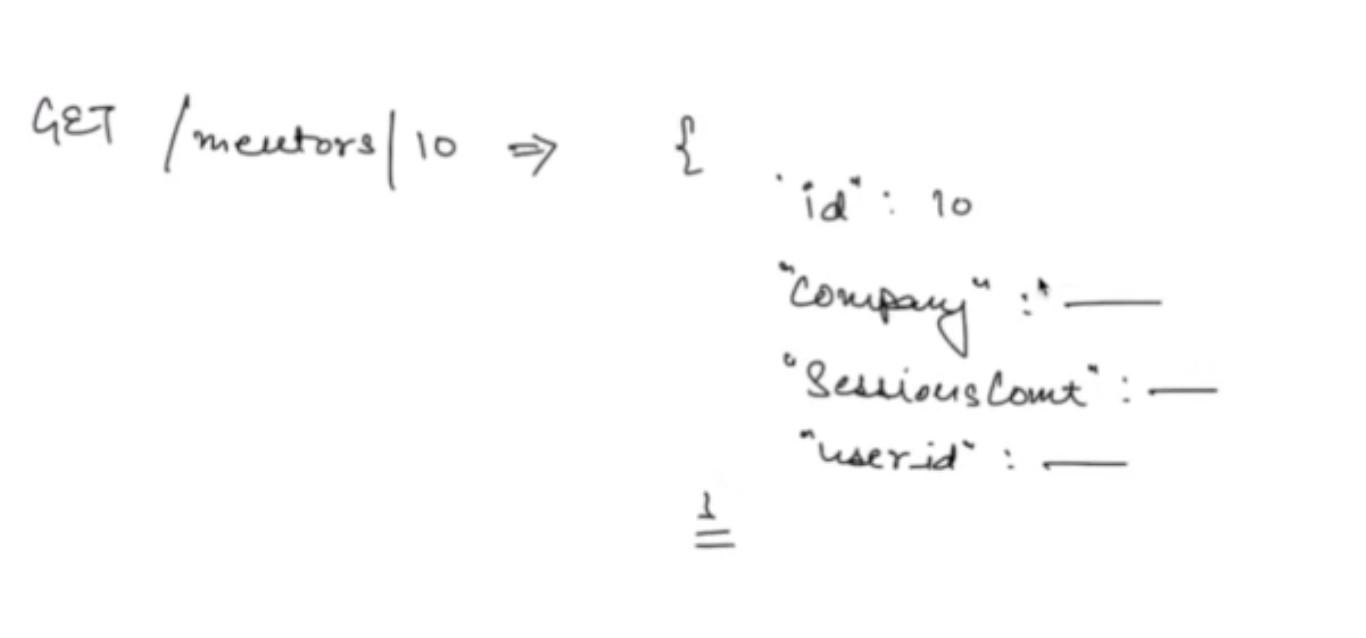 GET /mentors/10 ⇒ {
"id": 10
"Company": —
"SessionsCount": —
"user_id": —
}